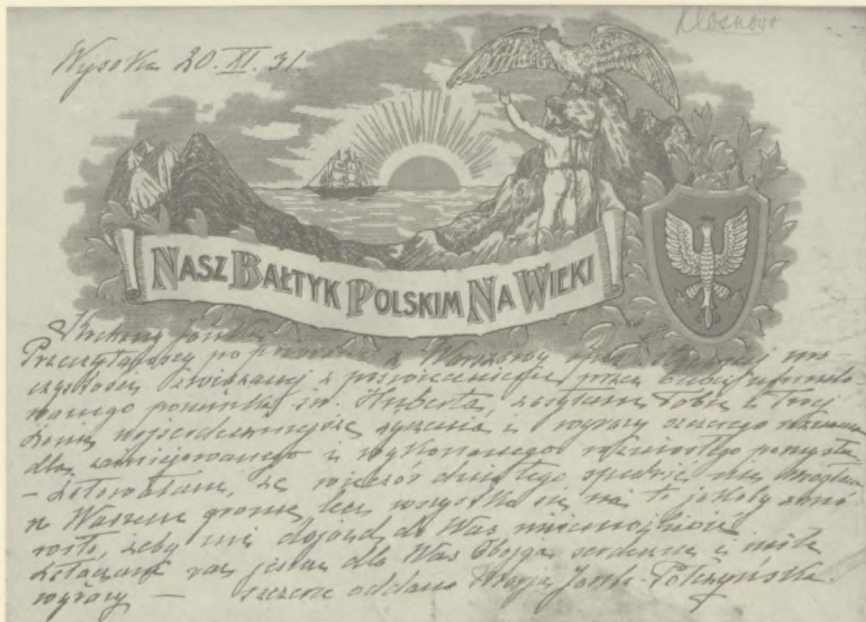 Kłosnowo
Wysoka 20. XI. 31.
NASZ BAŁTYK POLSKIM NA WIEKI
Kochany
Przeczytawszy po powrocie z Warszawy
czystości związanej z poświęceniem przez Ciebie
wanego pomnika św. Huberta, zasyłam Tobie i Twej
Żonie najserdeczniejsze życzenia i wyrazy szczerego
dla zainicjowanego i wykonanego pomysłu
– Żałowałam, że wieczór dnia tego, spędzić nie mogłam
w Waszem gronie, lecz wszystko się na to jakoby zmó
wiło, żeby mi dojazd do Was uniemożliwić
Załączam raz jeszcze dla Was Obojga serdeczne i miłe
wyrazy — szczerze oddana Janta-Połczyńska